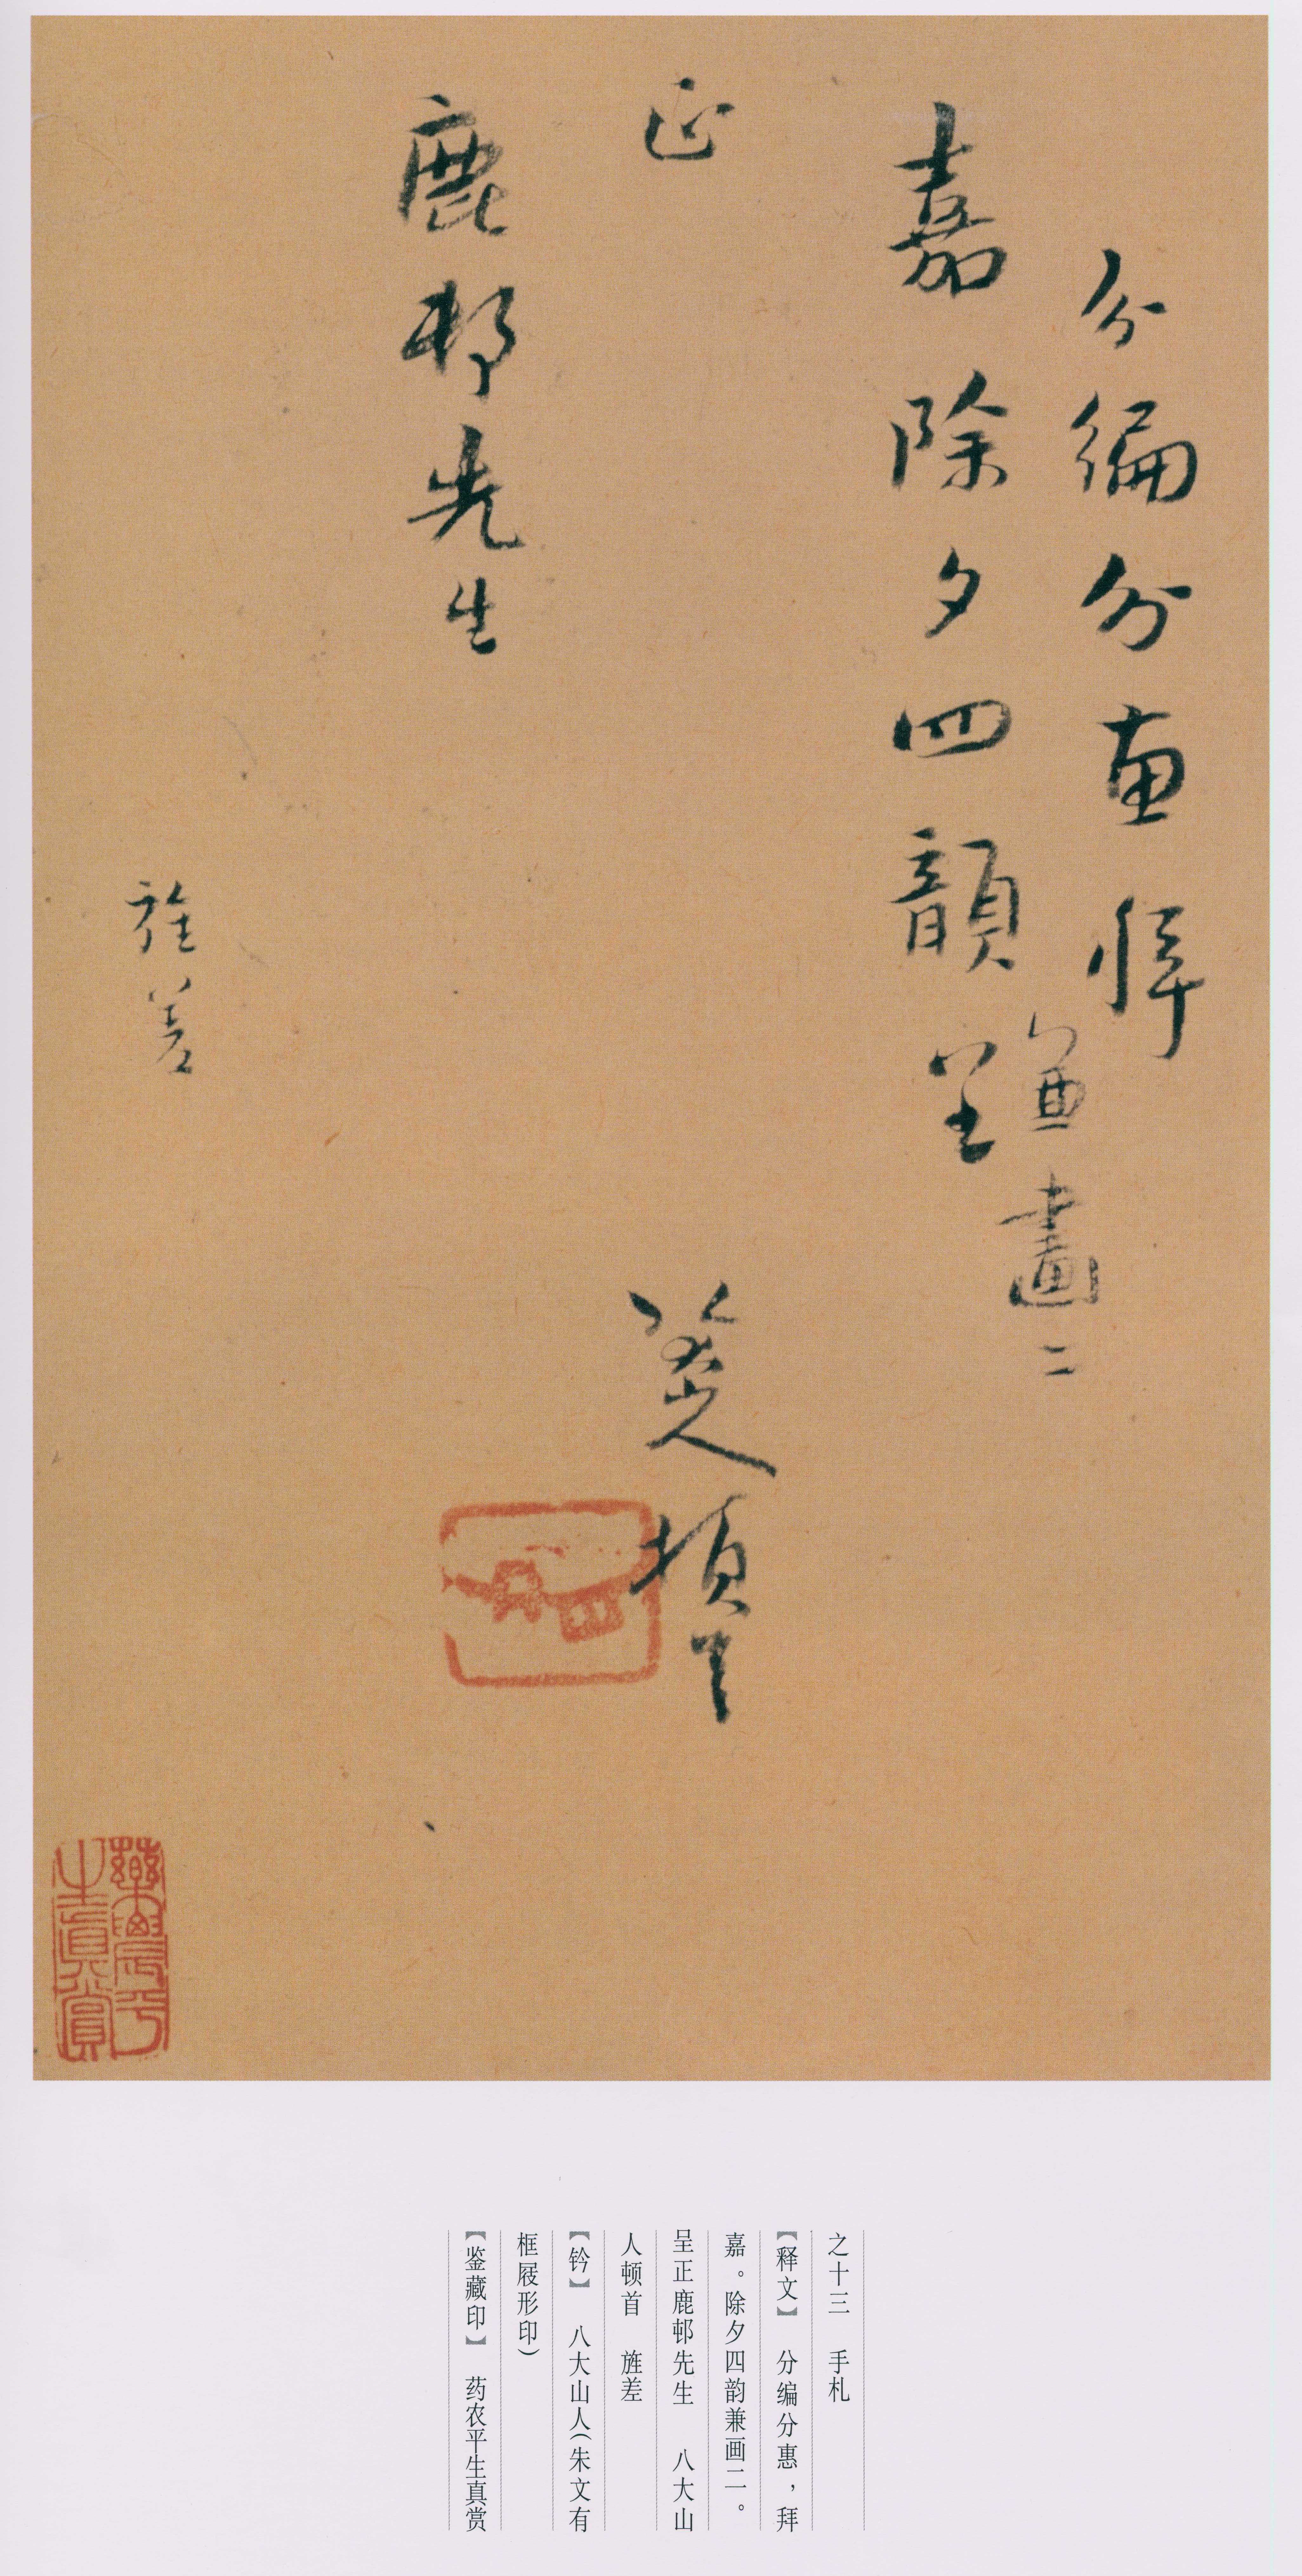 分編分惠拜
嘉除夕四韻兼畫二
呈
正
八大山人頓首
鹿邨先生
旌差
藥農平
生真賞
之十三 手札
【释文】 分编分惠，拜
嘉。除夕四韵兼画二。
呈正鹿邨先生 八大山
人顿首 旌差
【钤】 八大山人（朱文有
框屐形印）
【鉴藏印】 药农平生真赏